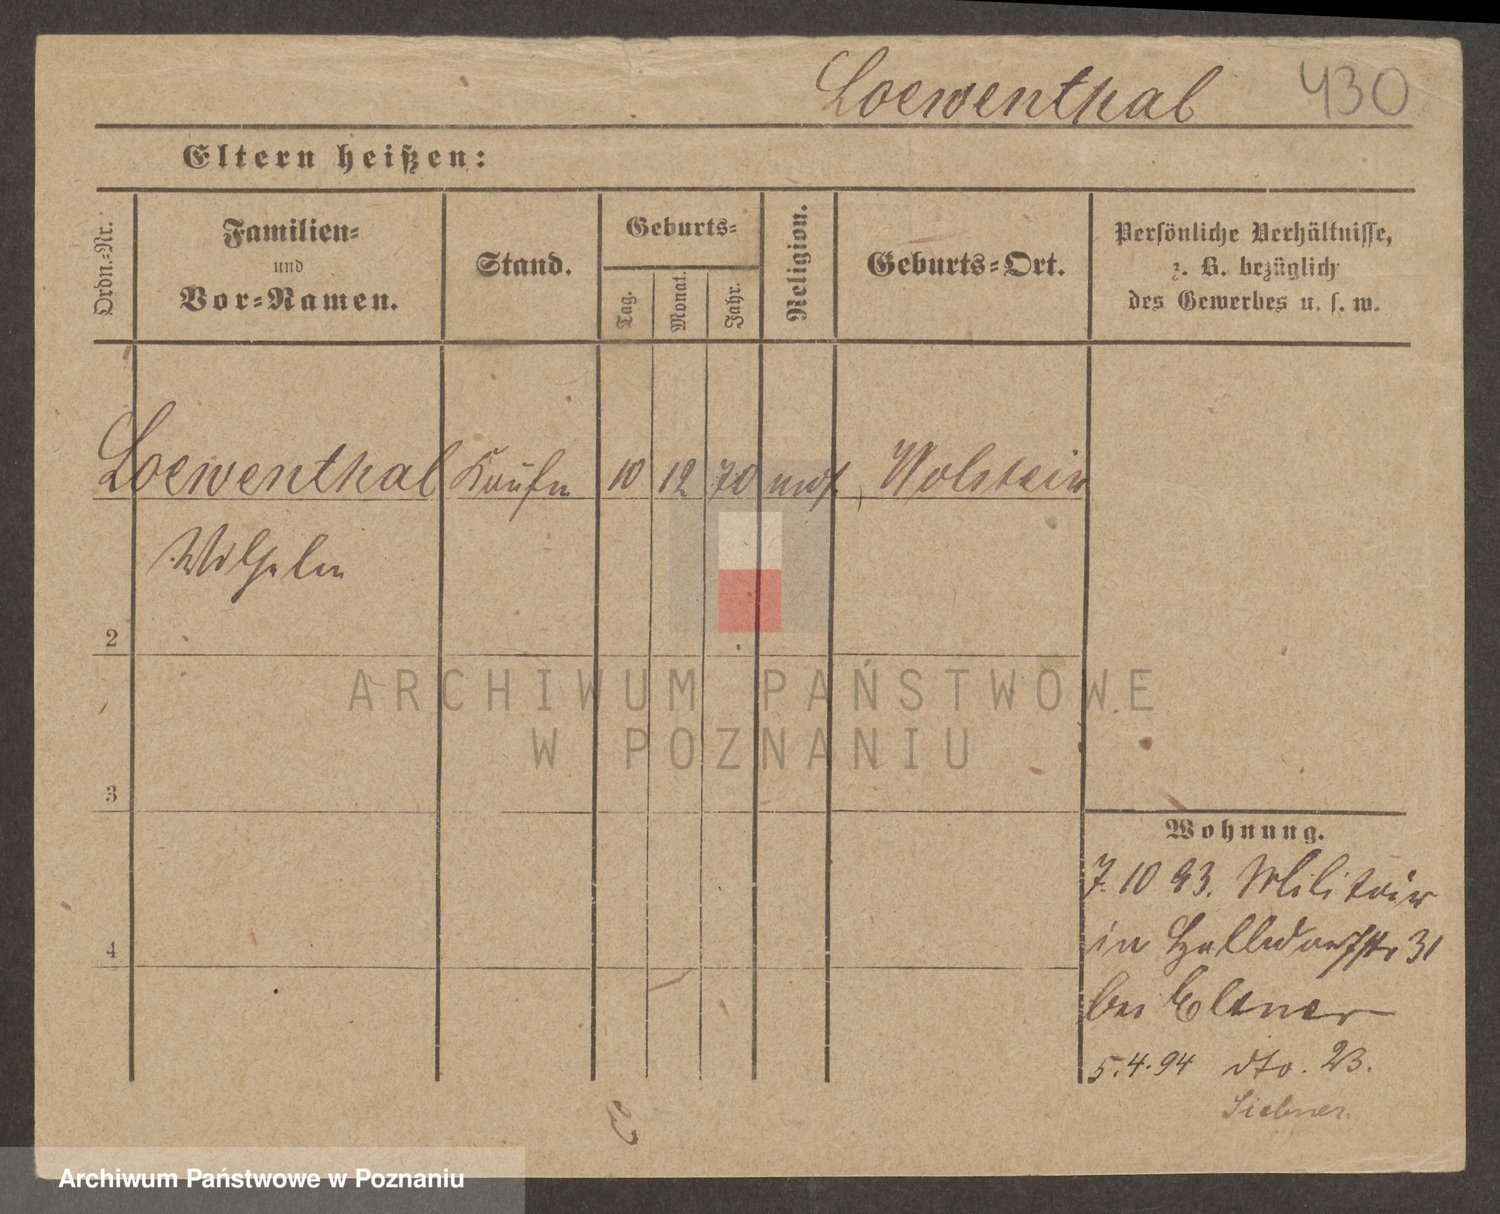 Loewenthal 430
Eltern heißen:
Ordn.-Nr.
Familien-
und
Vor-Namen.
Stand.
Geburts-
Tag.
Monat.
Jahr.
Religion.
Geburts-Ort.
Persönliche Verhältnisse,
z. B. bezüglich
des Gewerbes u. s. w.
Loewenthal Kaufm 10 12 70 mos. Wolstein
Wilhelm
2
3
4
Wohnung.
7. 10 93. Militair
in 31
bei
5.4.94 dto. 23.
ARCHIWUM PAŃSTWOWE
W POZNANIU
Archiwum Państwowe w Poznaniu